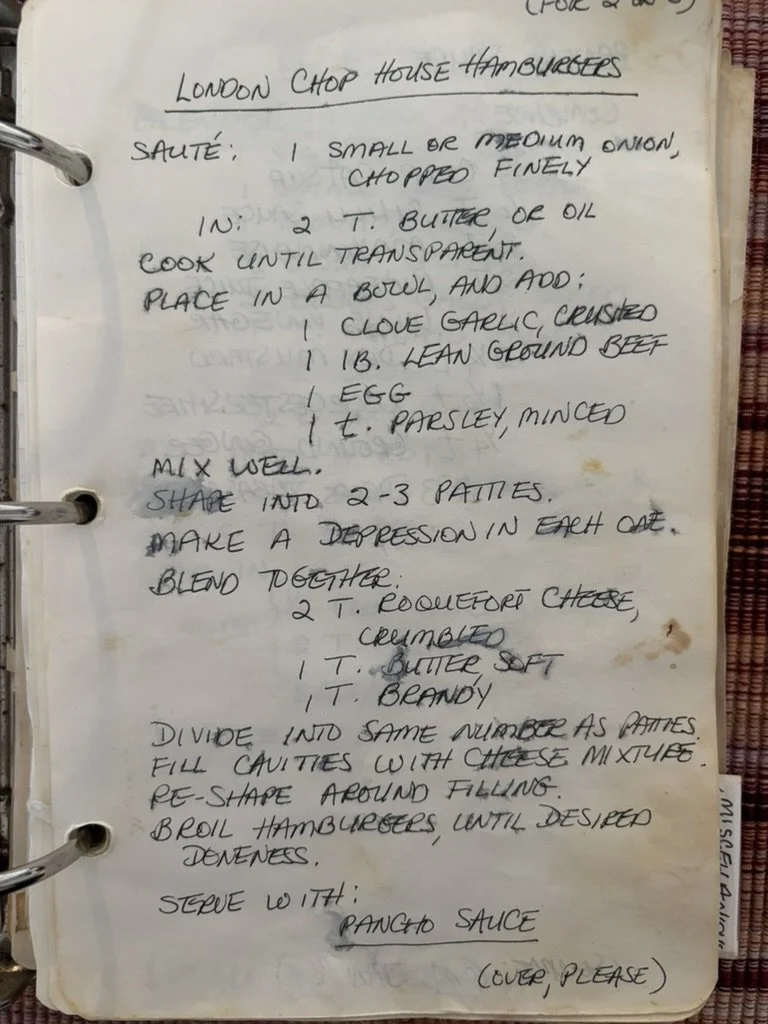 (FOR 2 OR 3)
LONDON CHOP HOUSE HAMBURGERS
SAUTÉ: 1 SMALL OR MEDIUM ONION,
CHOPPED FINELY
IN: 2 T. BUTTER, OR OIL
COOK UNTIL TRANSPARENT.
PLACE IN A BOWL, AND ADD:
1 CLOVE GARLIC, CRUSHED
1 lB. LEAN GROUND BEEF
1 EGG
1 t. PARSLEY, MINCED
MIX WELL.
SHAPE INTO 2-3 PATTIES.
MAKE A DEPRESSION IN EACH ONE.
BLEND TOGETHER:
2 T. ROQUEFORT CHEESE,
CRUMBLED
1 T. BUTTER, SOFT
1 T. BRANDY
DIVIDE INTO SAME NUMBER AS PATTIES.
FILL CAVITIES WITH CHEESE MIXTURE.
RE-SHAPE AROUND FILLING.
BROIL HAMBURGERS, UNTIL DESIRED
DONENESS.
SERVE WITH:
PANCHO SAUCE
(OVER, PLEASE)